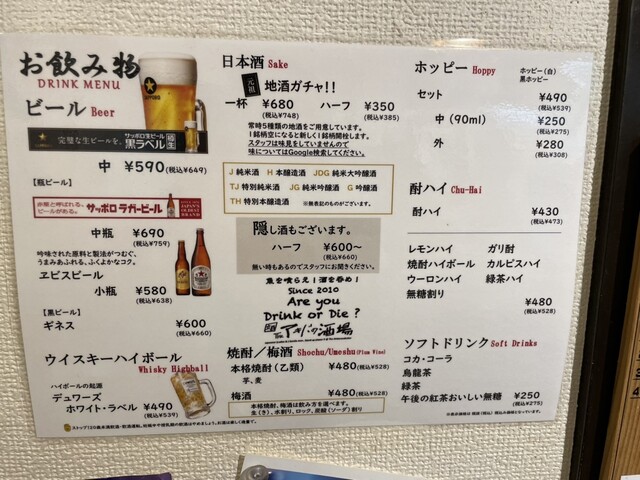 お飲み物
DRINK MENU
ビール Beer
SAPPORO
完璧な生ビールを。 サッポロ生ビール 黒ラベル
中 ¥590(税込¥649)
【瓶ビール】
赤星と呼ばれる、
ビールがある。
サッポロラガービール
中瓶 ¥690
(税込¥759)
吟味された原料と製法がつむぐ、
うまみあふれる、ふくよかなコク。
ヱビスビール
小瓶 ¥580
(税込¥638)
【黒ビール】
ギネス ¥600
(税込¥660)
ウイスキーハイボール
Whisky Highball
ハイボールの起源
デュワーズ
ホワイト・ラベル ¥490
(税込¥539)
日本酒 Sake
元祖 地酒ガチャ!!
一杯 ¥680 ハーフ ¥350
(税込¥748) (税込¥385)
常時5種類の地酒をご用意しています。
1銘柄空になると新しく1銘柄開栓します。
スタッフは味見をしていませんので
味についてはGoogle検索してください。
J 純米酒 H 本醸造酒 JDG 純米大吟醸酒
TJ 特別純米酒 JG 純米吟醸酒 G 吟醸酒
TH 特別本醸造酒 ※無表記のものがございます。
隠し酒もございます。
ハーフ ¥600~
(税込¥660)
無い時もあるのでスタッフにお聞きください。
魚を喰らえ!酒を呑め!
Since 2010
Are you
Drink or Die?
The アキバの酒場
焼酎/梅酒 Shochu/Umeshu(Plum Wine)
本格焼酎(乙類) ¥480(税込¥528)
芋、麦
梅酒 ¥480(税込¥528)
本格焼酎、梅酒は飲み方を選べます。
生(き)、水割り、ロック、炭酸(ソーダ)割り
ホッピー Hoppy
ホッピー(白)
黒ホッピー
セット ¥490
(税込¥539)
中(90ml) ¥250
(税込¥275)
外 ¥280
(税込¥308)
酎ハイ Chu-Hai
酎ハイ ¥430
(税込¥473)
レモンハイ ガリ酎
焼酎ハイボール カルピスハイ
ウーロンハイ 緑茶ハイ
無糖割り
¥480
(税込¥528)
ソフトドリンク Soft Drinks
コカ・コーラ
烏龍茶
緑茶
午後の紅茶おいしい無糖 ¥250
(税込¥275)